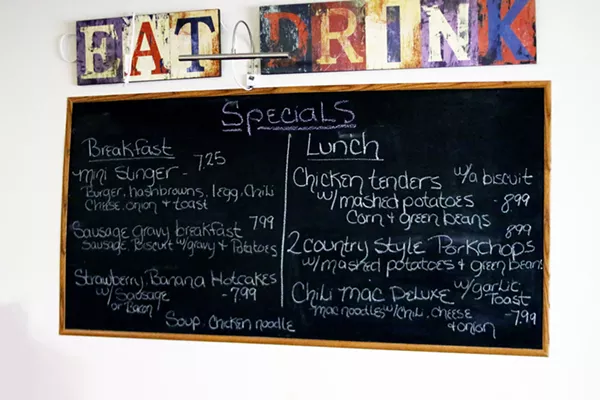 EAT DRINK
SPECIALS
Breakfast
mini slinger - 7.25
Burger, hashbrowns, 1egg, Chili
Cheese, onion & toast
Sausage gravy breakfast 7.99
Sausage, Biscuit w/gravy & Potatoes
Strawberry, Banana Hotcakes
w/ Sausage - 7.99
or Bacon
Soup. Chicken noodle
Lunch
Chicken tenders w/a biscuit
w/mashed potatoes - 8.99
Corn & green beans
8.99
2 Country Style Porkchops
w/mashed potatoes & green beans
Chili Mac Deluxe w/garlic
Toast
Mac noodles w/chili, cheese - 7.99
& onion